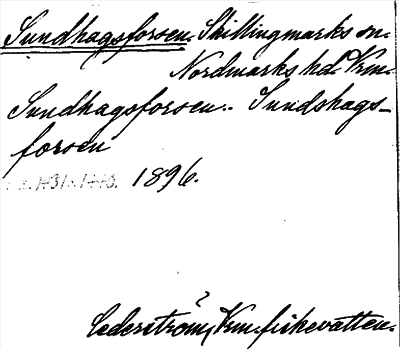 Sundhagsforsen. Skillingmarks sn.
Nordmarks hd. Vrm.
Sundhagsforsen.- Sundshags-
forsen
1896.
?
Cederström, Vrm. fiskevatten.